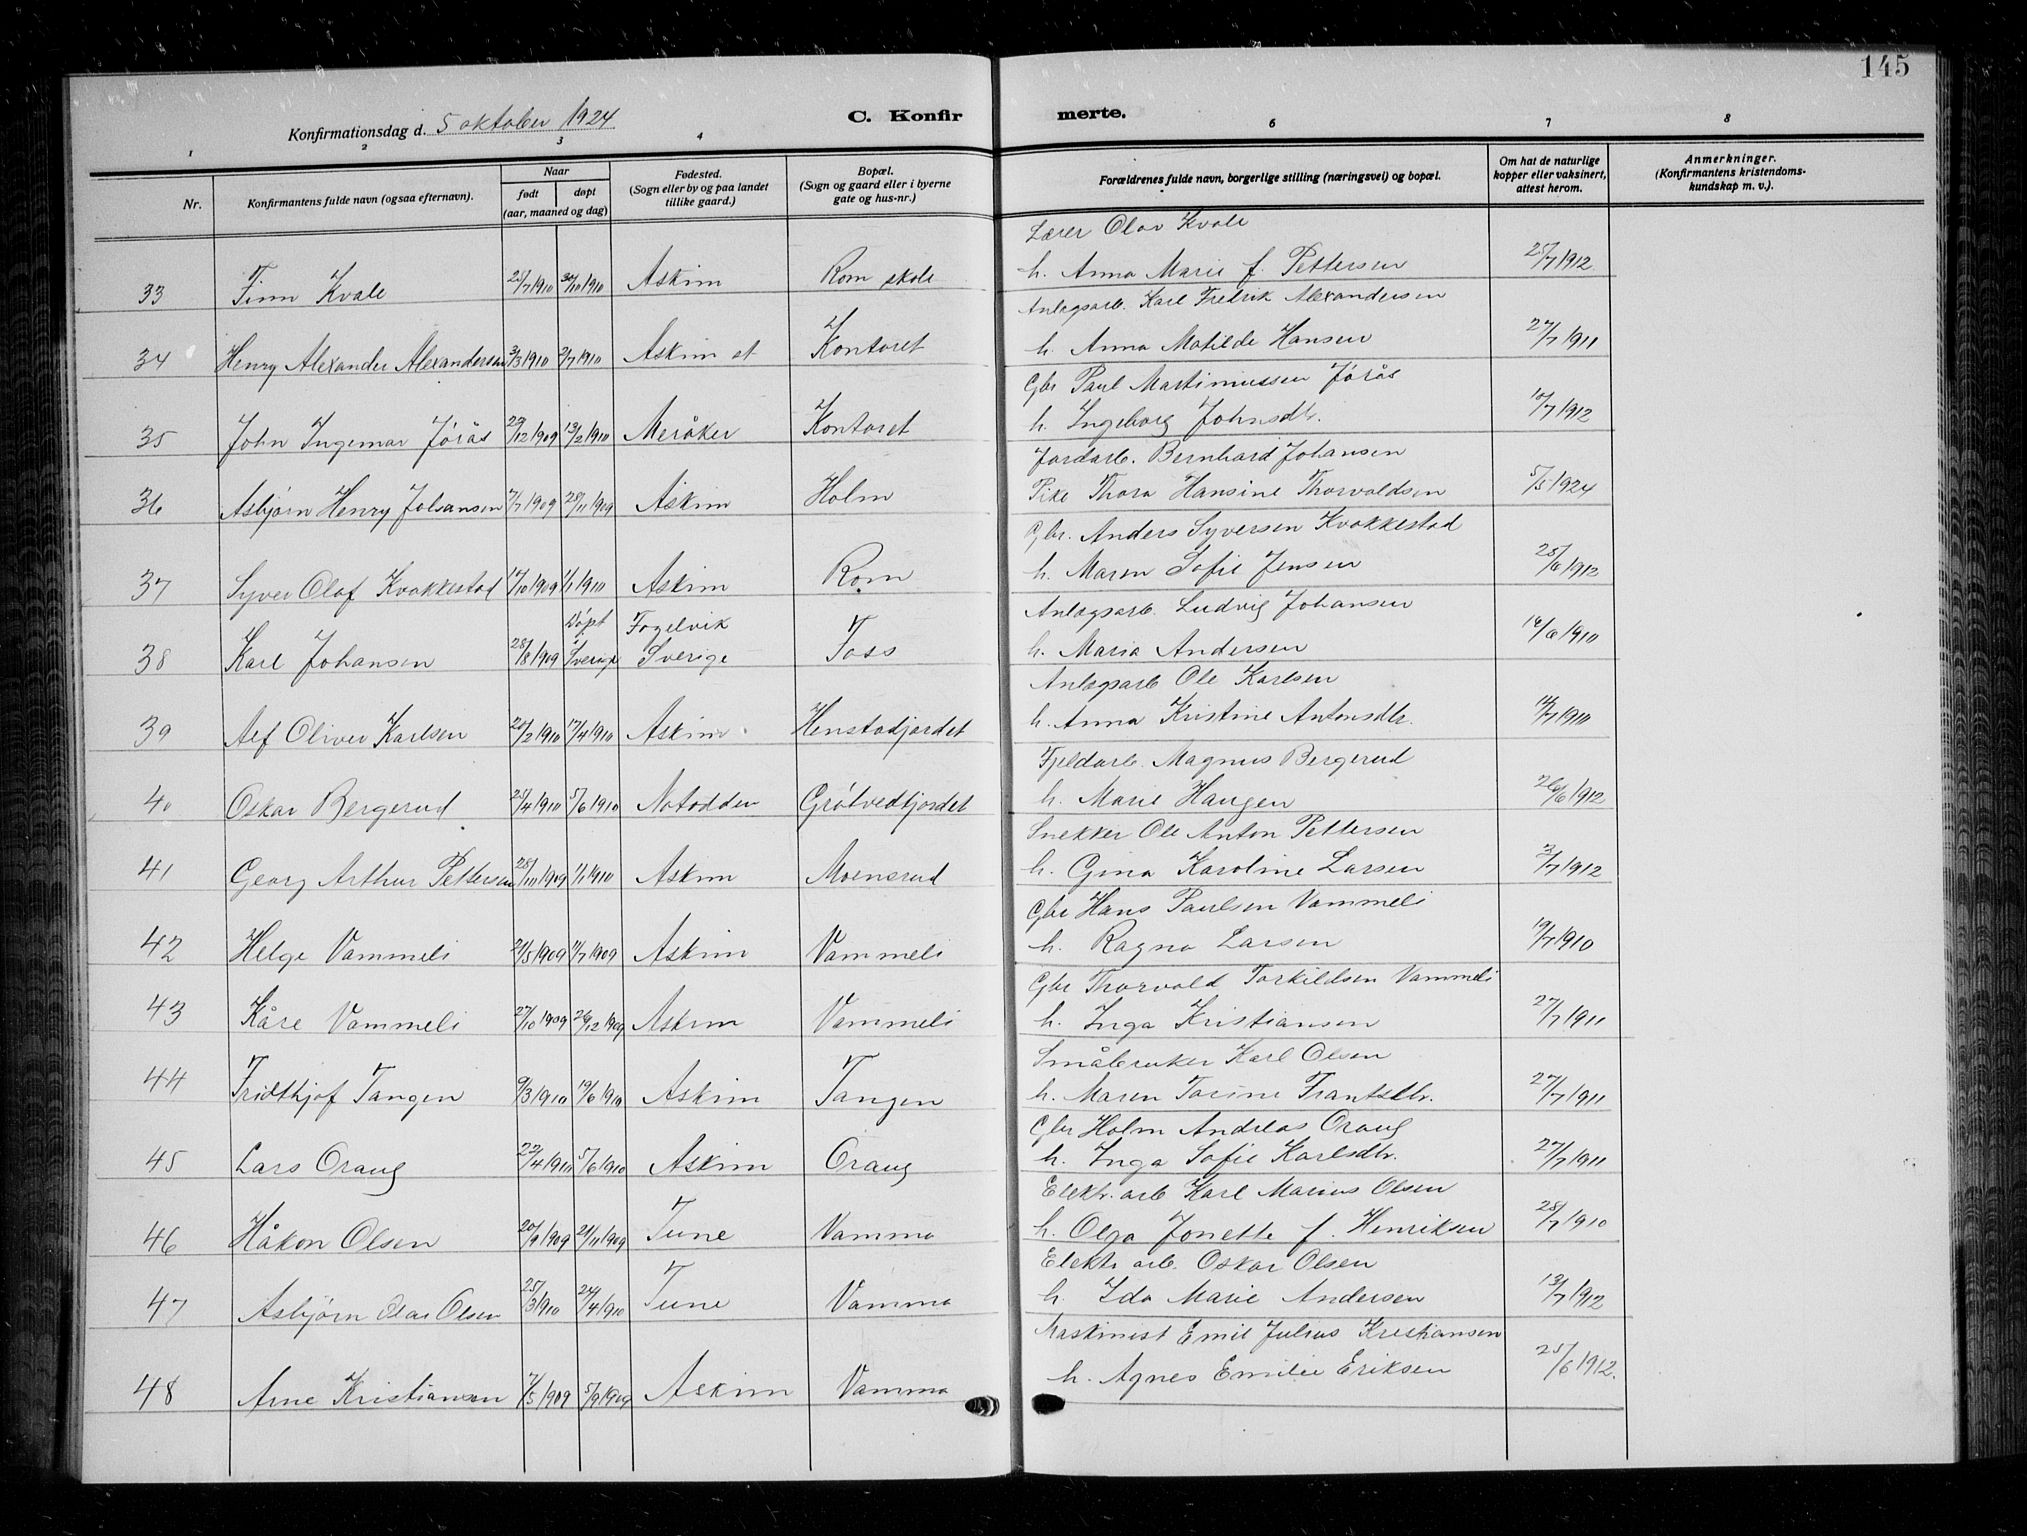 145
Konfirmationsdag d. 5 oktober 1924
C. Konfirmerte.
1 2 3 4 6 7 8
Nr. | Konfirmantens fulde navn (ogsaa efternavn). | Naar født døpt (aar, maaned og dag) | Fødested. (Sogn eller by og paa landet tillike gaard.) | Bopæl. (Sogn og gaard eller i byerne gate og hus-nr.) | Forældrenes fulde navn, borgerlige stilling (næringsvei) og bopæl. | Om hat de naturlige kopper eller vaksinert, attest herom. | Anmerkninger. (Konfirmantens kristendomskundskap m. v.).
Lærer Olav Kvale
33 Finn Kvale 25/7 1910 30/10 1910 Askim Rom skole h. Anna Marie f. Pettersen 25/7 1912.
Anlægsarb. Karl Fredrik Alexandersen
34 Henry Alexander Alexandersen 3/3 1910 2/7 1910 Askim st Kontoret h. Anna Matilde Hansen 27/7 1911
Gbr Paul Martinussen Jørås
35 John Ingemar Jørås 22/12 1909 13/2 1910 Meråker Kontoret h. Ingeborg Johnsdtr. 10/7 1912
Jordarb. Bernhard Johansen
36 Asbjørn Henry Johansen 7/7 1909 28/11 1909 Askim Holm Pike Thora Hansine Thorvaldsen 5/5 1924
Gbr. Anders Syversen Kvakkestad
37 Syver Olaf Kvakkestad 14/10 1909 1/1 1910 Askim Rom h. Maren Sofie Jensen 25/6 1912
Anlægsarb. Ludvig Johansen
38 Karl Johansen 28/8 1909 Døpt i Sverige Fogelvik Sverige Toss h. Maria Andersen 16/6 1910
Anlægsarb Ole Karlsen
39 Alf Oliver Karlsen 20/2 1910 17/4 1910 Askim Henstadjordet h. Anna Kristine Antonsdtr. 14/7 1910
Fjeldarb. Magnus Bergerud
40 Oskar Bergerud 25/4 1910 5/6 1910 Notodden Grøtvedtjordet h. Marie Haugen 26/6 1912
Snekker Ole Anton Pettersen
41 Georg Arthur Pettersen 28/10 1909 1/1 1910 Askim Moensrud h. Gina Karoline Larsen 3/7 1912
Gbr Hans Paulsen Vammeli
42 Helge Vammeli 21/5 1909 11/7 1909 Askim Vammeli h. Ragna Larsen 19/7 1910
Gbr Thorvald Torkildsen Vammeli
43 Kåre Vammeli 27/10 1909 26/12 1909 Askim Vammeli h. Inga Kristiansen 27/7 1911
Småbruker Karl Olsen
44 Fridthjof Tangen 9/3 1910 19/6 1910 Askim Tangen h. Maren Torine Frantsdtr. 27/7 1911
Gbr Holm Andreas Oraug
45 Lars Oraug 22/4 1910 5/6 1910 Askim Oraug h. Inga Sofie Karlsdtr. 27/7 1911
Elektr. arb Karl Marius Olsen
46 Håkon Olsen 20/9 1909 21/11 1909 Tune Vamma h. Olga Jonette f. Henriksen 28/7 1910
Elektr arb. Oskar Olsen
47 Asbjørn Olav Olsen 25/3 1910 24/4 1910 Tune Vamma h. Ida Marie Andersen 13/7 1912
Maskinist Emil Julius Kristiansen
48 Arne Kristiansen 7/5 1909 5/9 1909 Askim Vamma h. Agnes Emilie Eriksen 25/6 1912.